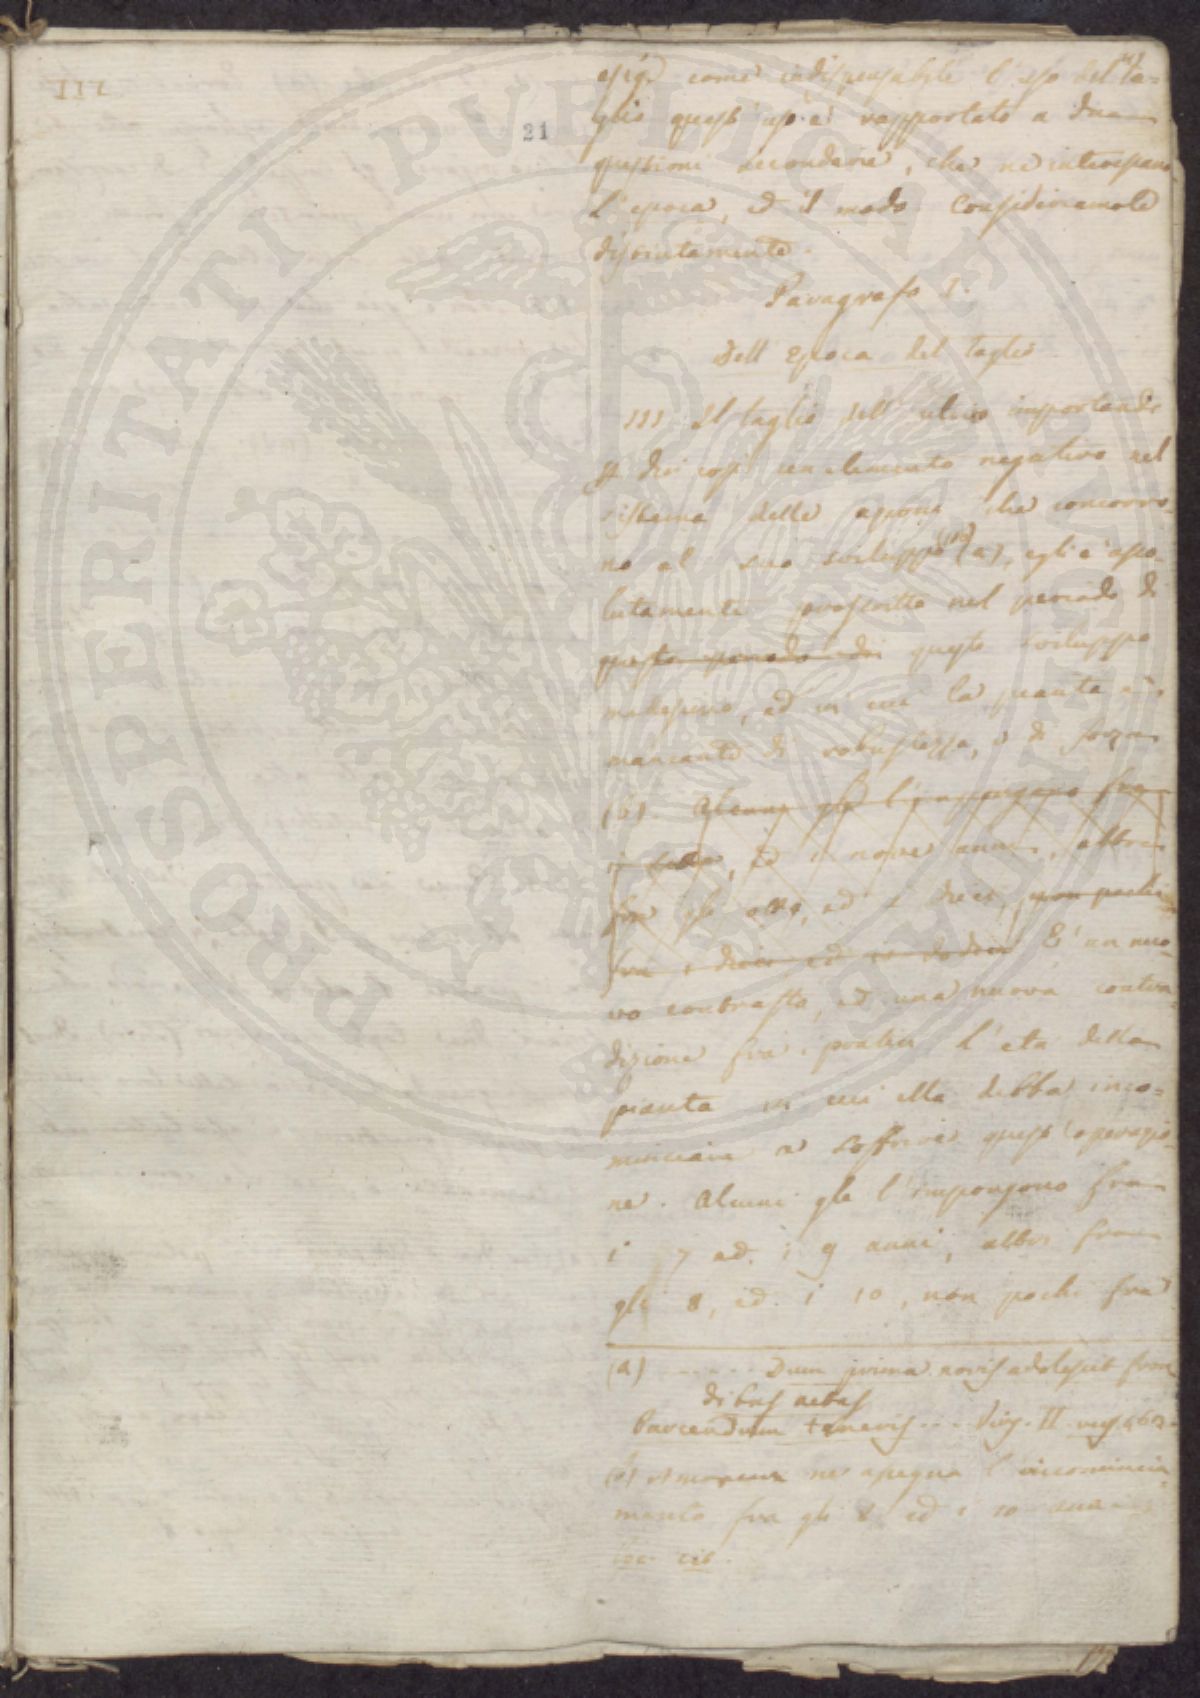 III
21
esige come indispensabile l'uso del ta=
glio quest'uso è rapportato a due
questioni secondarie, che ne interessano
l'epoca, ed il modo. Consideriamole
distintamente.
Paragrafo I.
Dell'Epoca del taglio
III Il taglio dell'ulivo importando
dir così un elemento negativo nel
sistema delle azioni che concorro=
no al suo sviluppo (a), egli è asso=
lutamente proscritto nel periodo di
questo periodo di questo sviluppo
medesimo, ed in cui la pianta è
mancante di robustezza, e di forza
(b). Alcuni gli l'impongono fra
i sette, ed i nove anni, altri
fra gli otto, ed i dieci, non pochi
fra i dieci ed i dodici È un nuo=
vo contrasto, ed una nuova contra=
dizione fra i pratici l'età della
pianta in cui ella debba inco=
minciare a soffrire quest'operazio=
ne. Alcuni gle l'impongono fra
i 7 ed i 9 anni, altri fra
gli 8, ed i 10, non pochi fra
(a) ..... Dum prima novis adolescit fron
dibus aetas
Parcendum teneris ... Virg. II
(b) ne assegna l'incomincia=
mento fra gli 8 ed i 10 anni
loc. cit.
PROSPERITATI PVBLICAE